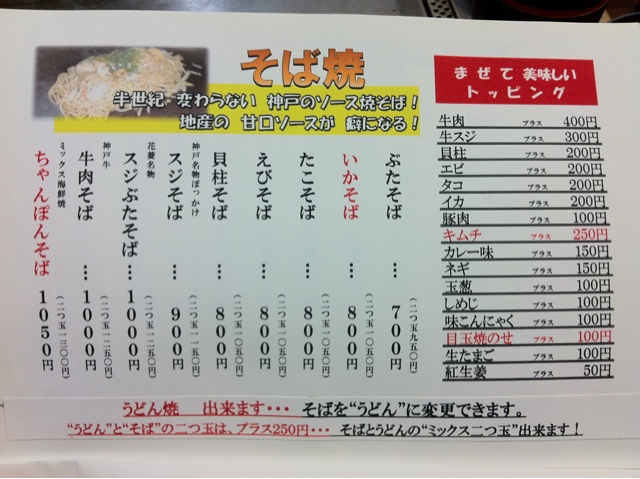 そば焼
半世紀 変わらない 神戸のソース焼そば！
地産の 甘口ソースが 癖になる！
ぶたそば … 700円
(二つ玉九五〇円)
いかそば … 800円
(二つ玉一〇五〇円)
たこそば … 800円
(二つ玉一〇五〇円)
えびそば … 800円
(二つ玉一〇五〇円)
貝柱そば … 800円
(二つ玉一〇五〇円)
神戸名物ぼっかけ
スジそば … 900円
(二つ玉一一五〇円)
花菱名物
スジぶたそば … 1000円
(二つ玉一二五〇円)
神戸牛
牛肉そば … 1000円
(二つ玉一二五〇円)
ミックス海鮮焼
ちゃんぽんそば 1050円
(二つ玉一三〇〇円)
まぜて 美味しい
トッピング
牛肉 プラス 400円
牛スジ プラス 300円
貝柱 プラス 200円
エビ プラス 200円
タコ プラス 200円
イカ プラス 200円
豚肉 プラス 100円
キムチ プラス 250円
カレー味 プラス 150円
ネギ プラス 150円
玉葱 プラス 100円
しめじ プラス 100円
味こんにゃく プラス 100円
目玉焼のせ プラス 100円
生たまご プラス 100円
紅生姜 プラス 50円
うどん焼 出来ます・・・ そばを“うどん”に変更できます。
“うどん”と“そば”の二つ玉は、プラス250円・・・ そばとうどんの“ミックス二つ玉”出来ます！